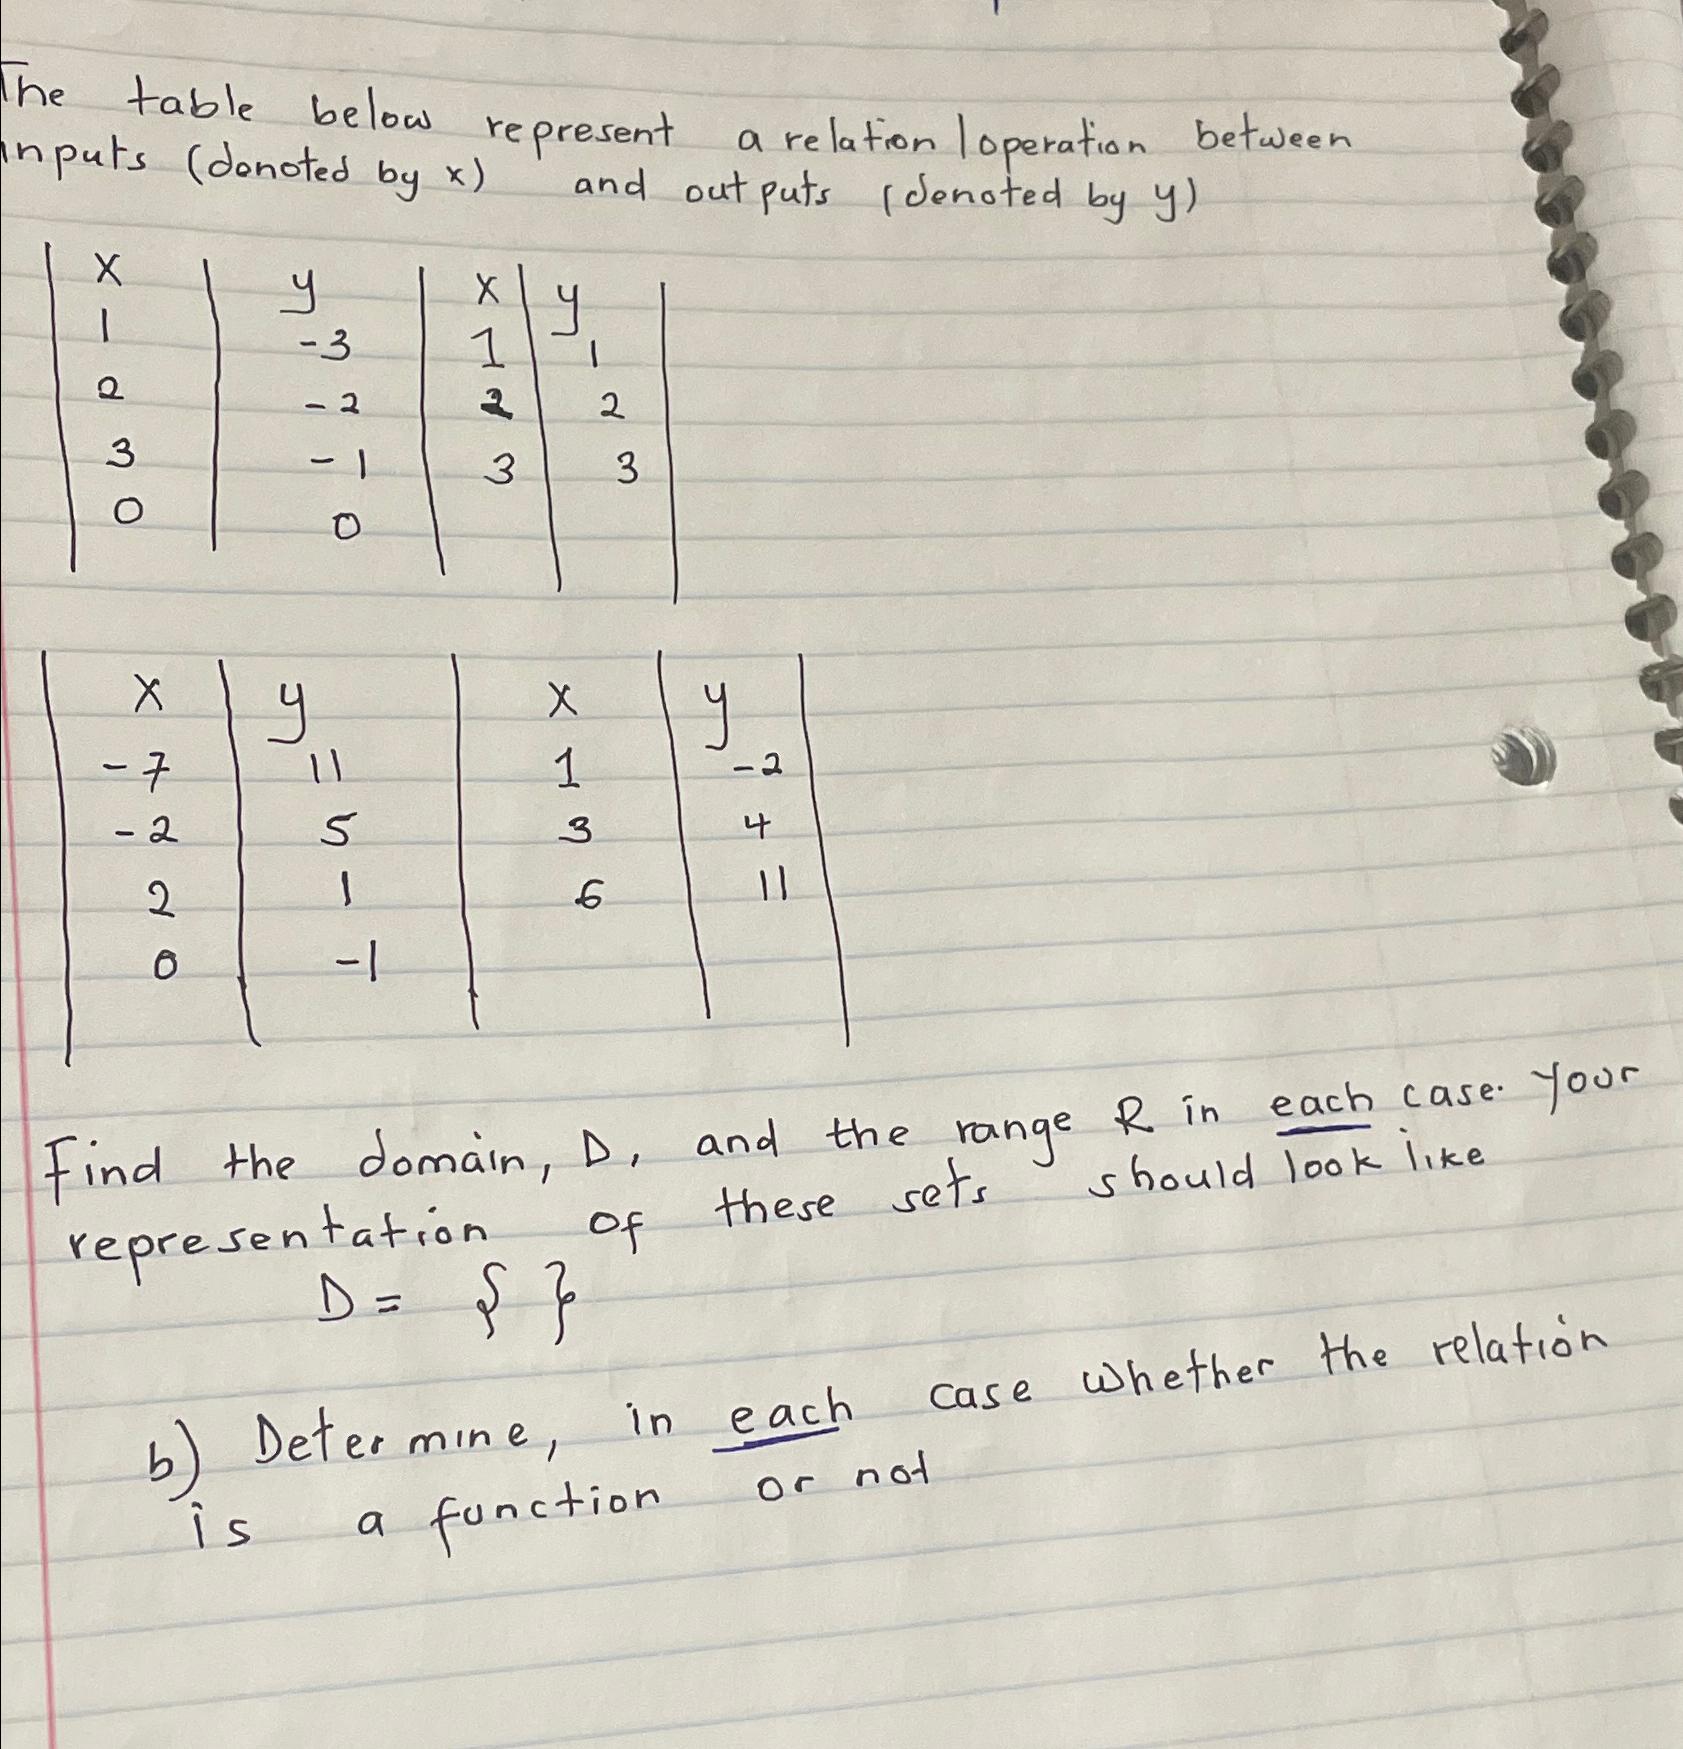 The table below represent a relation/operation between
inputs (donoted by x) and outputs (denoted by y)
x y x y
1 -3 1 1
2 -2 2 2
3 -1 3 3
0 0
x y x y
-7 11 1 -2
-2 5 3 4
2 1 6 11
0 -1
Find the domain, D, and the range R in each case. Your
representation of these sets should look like
D = { }
b) Determine, in each case whether the relation
is a function or not